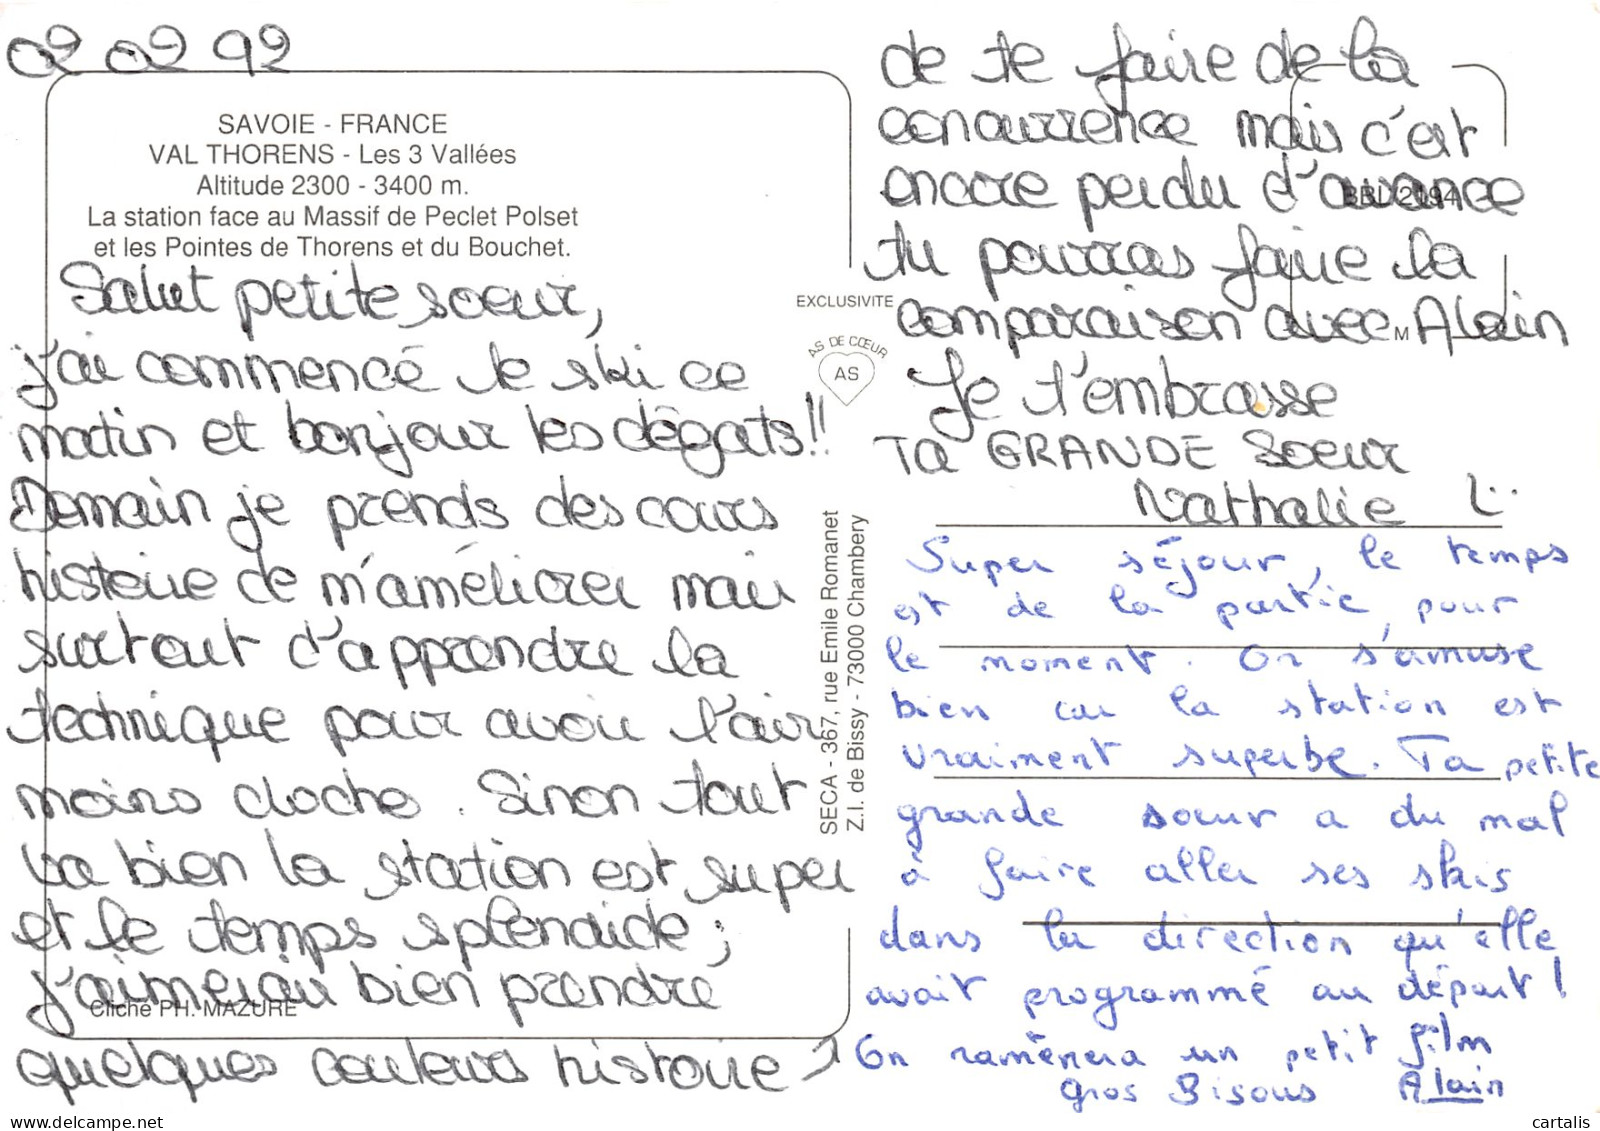 02 02 92
SAVOIE - FRANCE
VAL THORENS - Les 3 Vallées
Altitude 2300 - 3400 m.
La station face au Massif de Peclet Polset
et les Pointes de Thorens et du Bouchet.
Salut petite soeur,
j'ai commencé le ski ce
matin et bonjour les dégats!!
Demain je prends des cours
histoire de m'améliorer mais
surtout d'apprendre la
technique pour avoir l'air
moins cloche. Sinon tout
va bien la station est super
et le temps splendide;
j'aimerais bien prendre
Cliché PH. MAZURE
quelques couleurs histoire
EXCLUSIVITE
AS DE CŒUR
AS
SECA - 367, rue Emile Romanet
Z.I. de Bissy - 73000 Chambery
de te faire de la
concurrence mais c'est
encore perdu d'avance
tu pourras faire la
comparaison avec Alain
M
Je t'embrasse
Ta GRANDE Soeur
Nathalie
Super séjour, le temps
est de la partie, pour
le moment. On s'amuse
bien car la station est
vraiment superbe. Ta petite
grande soeur a du mal
à faire aller ses skis
dans la direction qu'elle
avait programmé au départ!
On ramènera un petit film
Gros Bisous Alain
cartalis